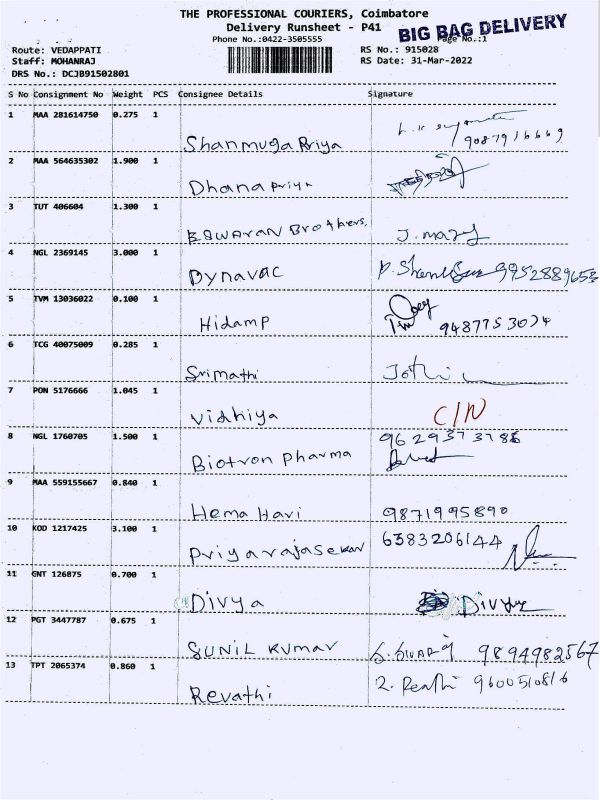 THE PROFESSIONAL COURIERS, Coimbatore
Delivery Runsheet - P41
BIG BAG DELIVERY
Phone No.:0422-3505555
Page No.:1
Route: VEDAPPATI
RS No.: 915028
Staff: MOHANRAJ
RS Date: 31-Mar-2022
DRS No.: DCJB91502801
S No Consignment No Weight PCS Consignee Details Signature
1 MAA 281614750 0.275 1
Shanmuga Priya 9087916669
2 MAA 564635302 1.900 1
Dhana Priya
3 TUT 406604 1.300 1
Eswaran Brothers, J. mary
4 NGL 2369145 3.000 1
Dynavac 9952889653
5 TVM 13036022 0.100 1
Hidamp 9487753074
6 TCG 40075009 0.285 1
Srimathi Jothi
7 PON 5176666 1.045 1
Vidhiya C/N
8 NGL 1760705 1.500 1 9629373786
Biotron Pharma
9 MAA 559155667 0.840 1
Hema Hari 9871995890
10 KOD 1217425 3.100 1 6383206144
Priyarajasekar
11 GNT 126875 0.700 1
Divya
12 PGT 3447787 0.675 1
SUNIL KUMAR 9894982567
13 TPT 2065374 0.860 1 9600510816
Revathi